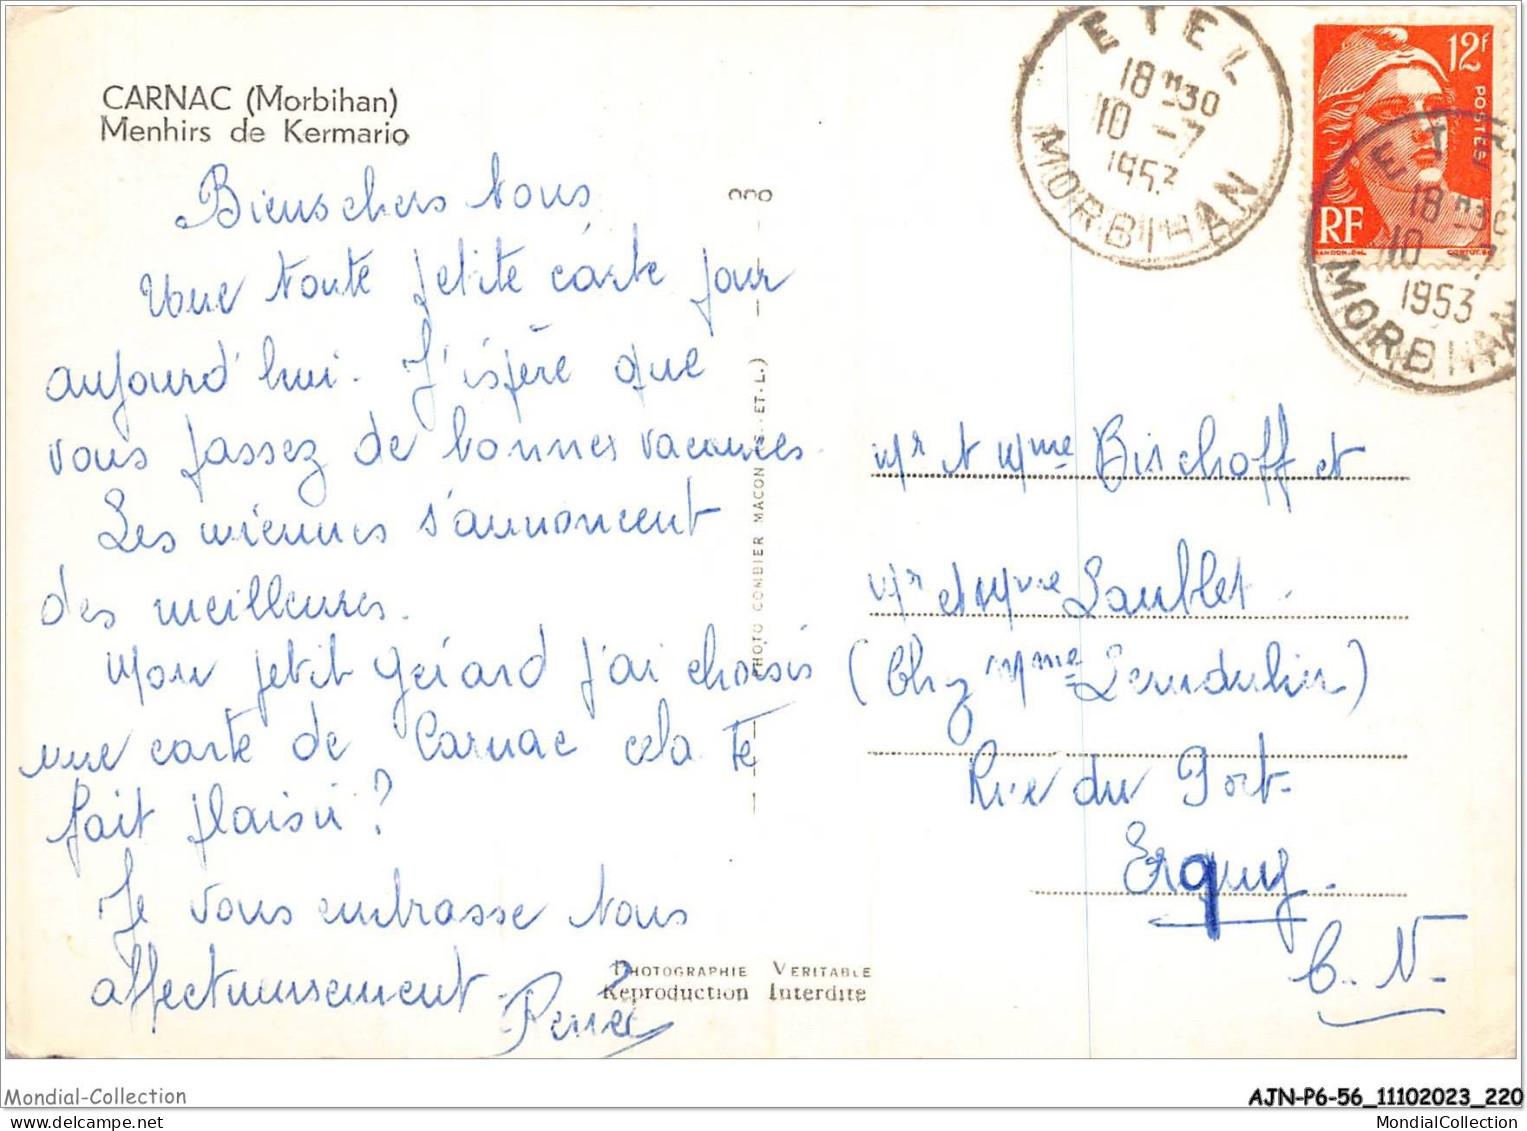 CARNAC (Morbihan)
Menhirs de Kermario
Biens chers tous
Une toute petite carte pour
aujourd'hui. J'espère que
vous passez de bonnes vacances.
Les miennes s'annoncent
des meilleures.
Mon petit Gérard j'ai choisis
une carte de Carnac cela te
fait plaisir?
Je vous embrasse tous
affectueusement.
PHOTO COMBIER MACON ET-L.)
PHOTOGRAPHIE VERITABLE
Reproduction Interdite
ETEL
18H30
10 -7
1953
MORBIHAN
12F
POSTES
RF
GANDON.DEL.
CORTOT.SC.
ETEL
18H30
10 -7
1953
MORBIHAN
Mr et Mme Bischoff et
Mr et Mme Laublet.
(Chez Mme
Rue du Port
Erquy.
C.N.
Mondial-Collection
AJN-P6-56_11102023_220
delcampe.net
MondialCollection